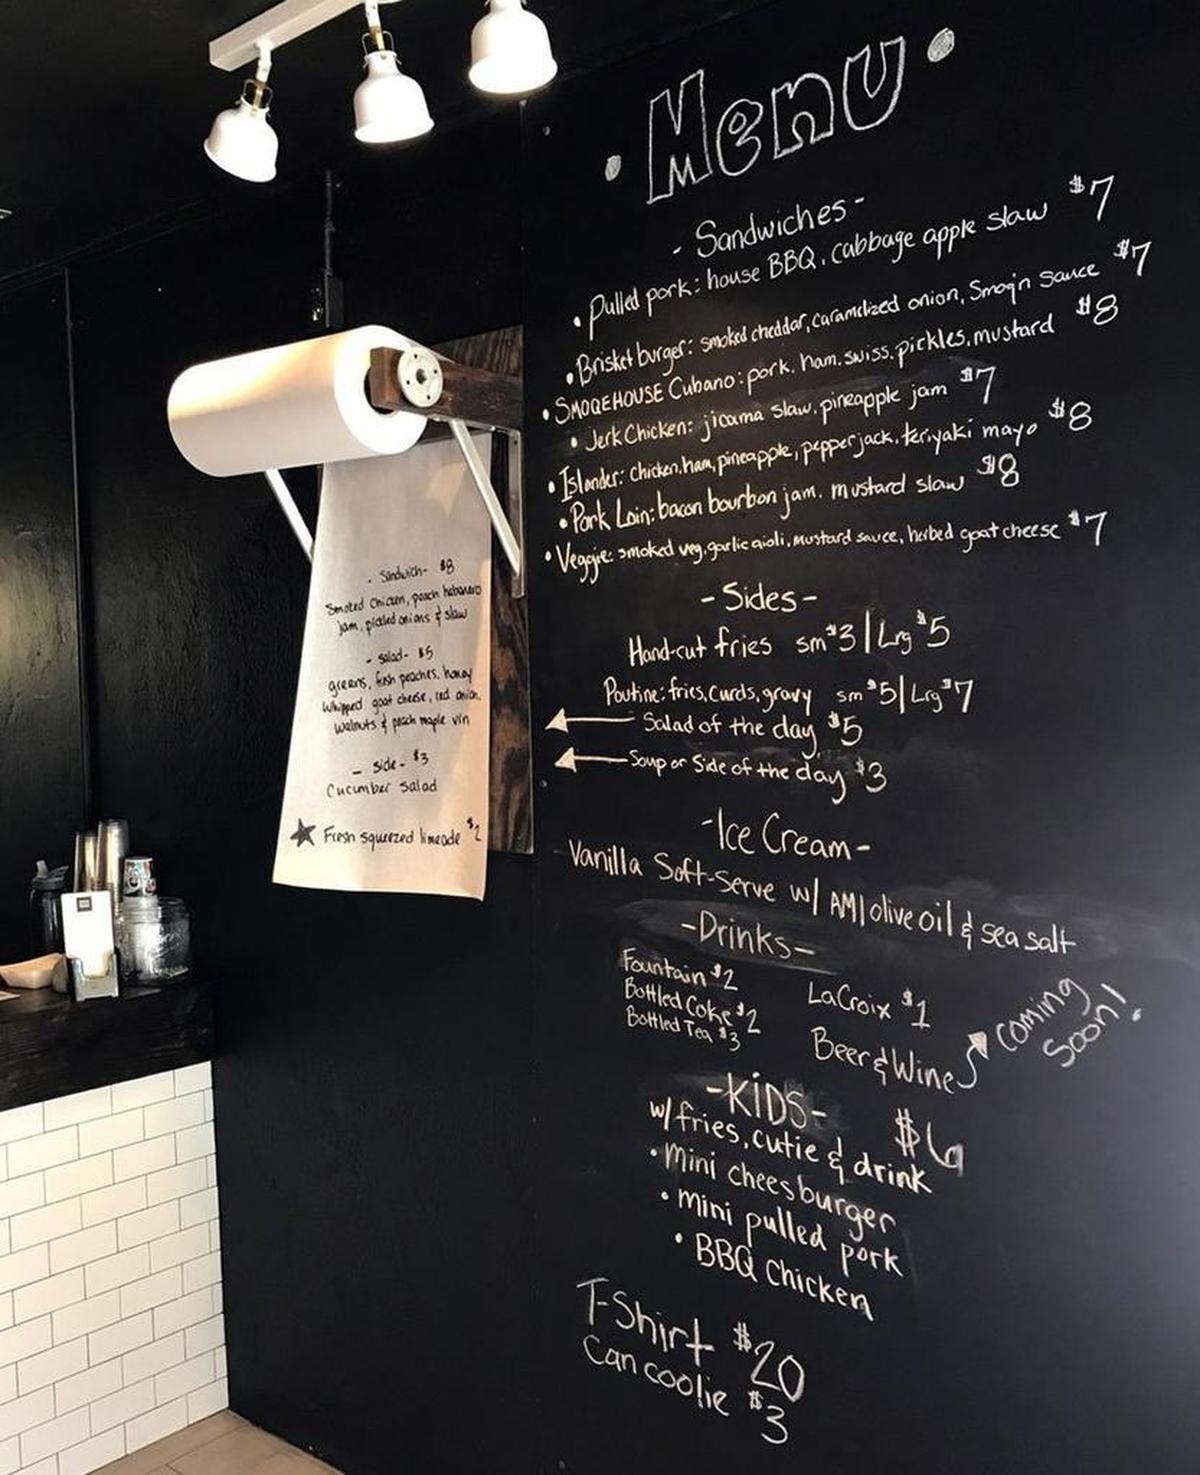 Menu
- Sandwiches -
• Pulled pork: house BBQ, cabbage apple slaw $7
• Brisket burger: smoked cheddar, caramelized onion, Smoq'n sauce $7
• SMOQEHOUSE Cubano: pork, ham, swiss, pickles, mustard $8
• Jerk Chicken: jicama slaw, pineapple jam $7
• Islander: chicken, ham, pineapple, pepperjack, teriyaki mayo $8
• Pork Loin: bacon bourbon jam, mustard slaw $8
• Veggie: smoked veg, garlic aioli, mustard sauce, herbed goat cheese $7
- Sides -
Hand-cut fries sm $3 | Lrg $5
Poutine: fries, curds, gravy sm $5 | Lrg $7
Salad of the day $5
Soup or Side of the day $3
- Ice Cream -
Vanilla Soft-Serve w/ AM | olive oil & sea salt
- Drinks -
Fountain $2
Bottled Coke $2
Bottled Tea $3
LaCroix $1
Beer & Wine
coming
soon!
- KiDS - $6
w/ fries, cutie & drink
• mini cheesburger
• mini pulled pork
• BBQ chicken
T-Shirt $20
Can coolie $3
- Sandwich - $8
Smoked Chicken, peach habanero
jam, pickled onions & slaw
- salad - $5
greens, fresh peaches, honey
whipped goat cheese, red onion,
walnuts & peach maple vin
- side - $3
Cucumber salad
★ Fresh squeezed limeade $2